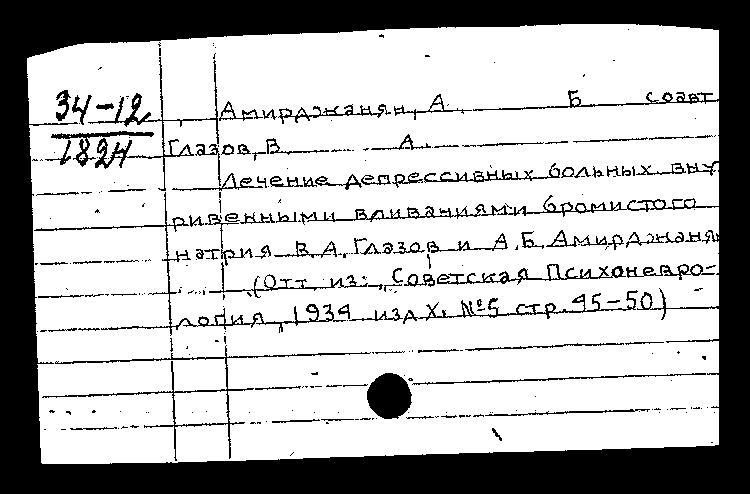 34-12
1824
Амирджанян, А. Б соавт
Глазов, В. А.
Лечение депрессивных больных вну
ривенными вливаниями бромистого
натрия В.А. Глазов и А.Б. Амирджаня
(Отт. из: "Советская Психоневро-
логия", 1934 изд X. №5 стр. 45-50)